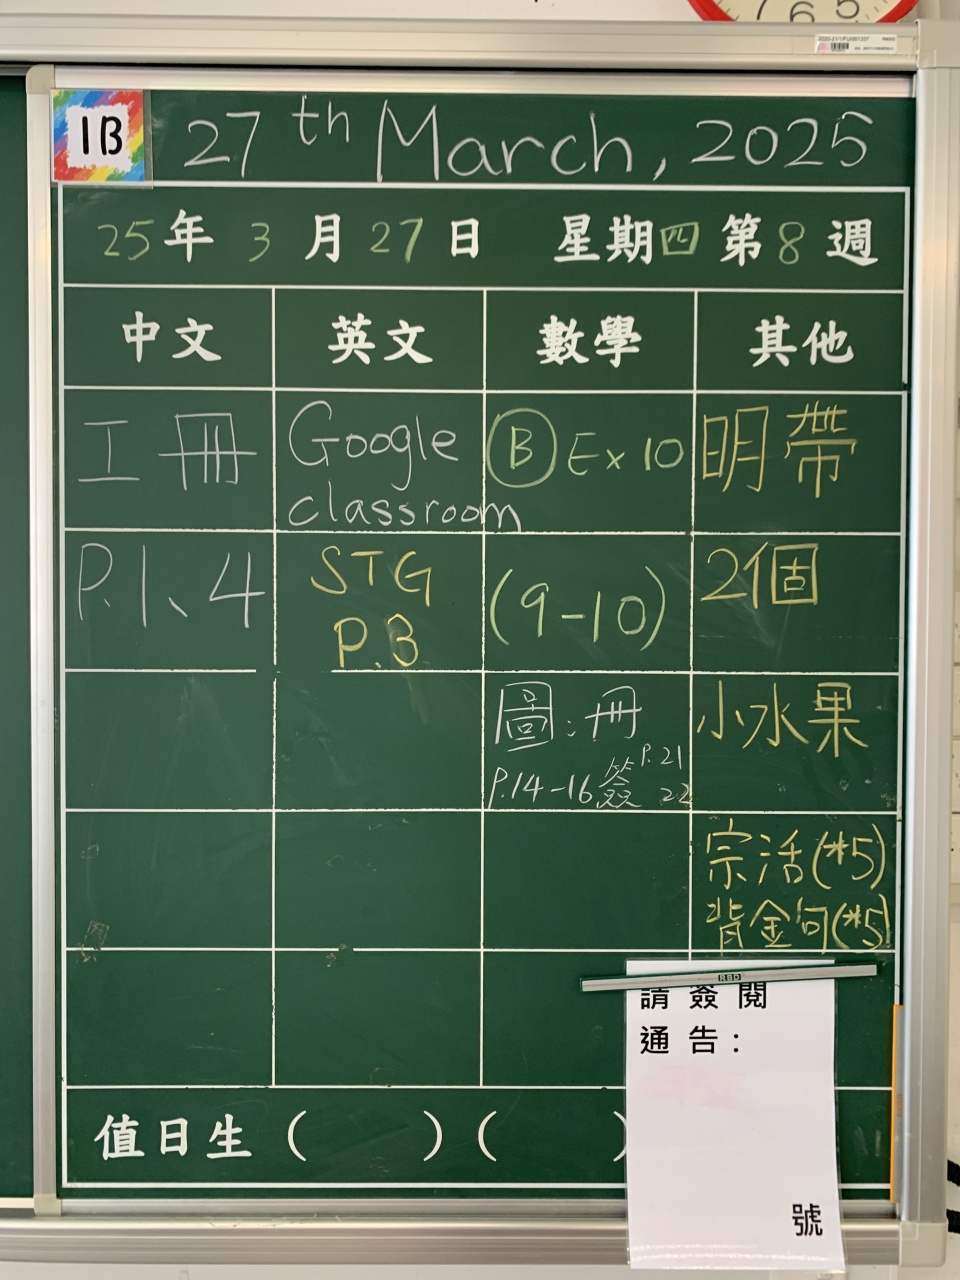 7 6 5
1B
27th March, 2025
25年 3月27日 星期四 第8週
中文 英文 數學 其他
工冊
Google classroom
Ⓑ Ex 10
明帶
P.1、4
STG
P.3
(9-10)
2個
圖:冊
P.14-16簽 P.21
22
小水果
宗活(*5)
背金句(*5)
RBD
請簽閱
通告:
號
值日生 ( ) ( )